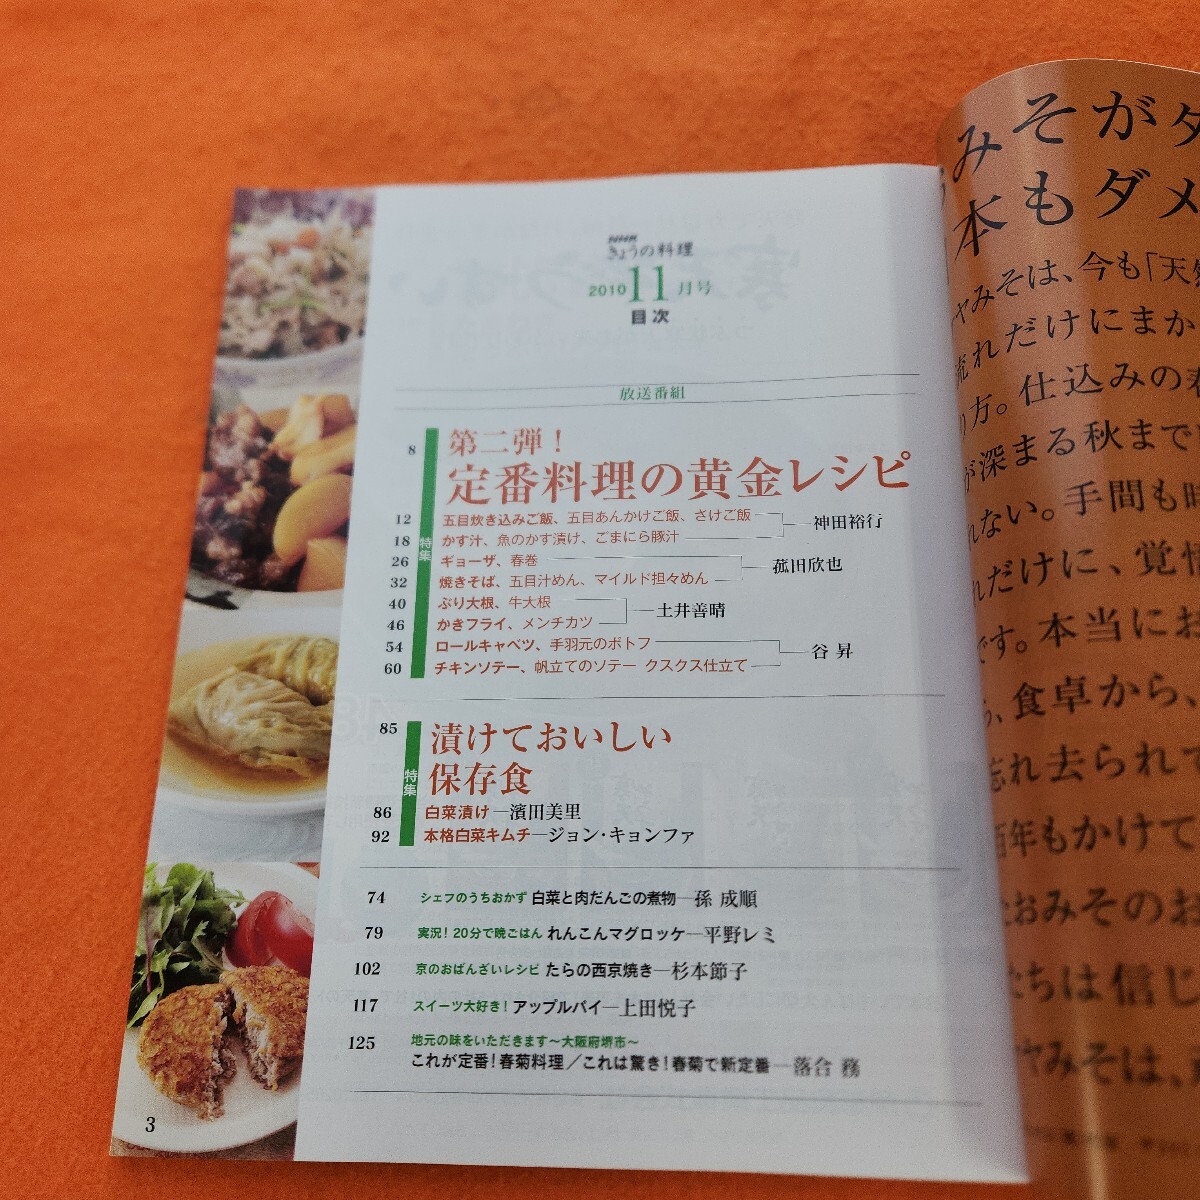 NHK
きょうの料理
2010 11月号
目次
放送番組
8 第二弾!
定番料理の黄金レシピ
特集
12 五目炊き込みご飯、五目あんかけご飯、さけご飯
18 かす汁、魚のかす漬け、ごまにら豚汁
神田裕行
26 ギョーザ、春巻
32 焼きそば、五目汁めん、マイルド担々めん
菰田欣也
40 ぶり大根、牛大根
46 かきフライ、メンチカツ
土井善晴
54 ロールキャベツ、手羽元のポトフ
60 チキンソテー、帆立てのソテー クスクス仕立て
谷 昇
85 漬けておいしい
保存食
特集
86 白菜漬け―濱田美里
92 本格白菜キムチ―ジョン・キョンファ
74 シェフのうちおかず 白菜と肉だんごの煮物―孫 成順
79 実況!20分で晩ごはん れんこんマグロッケ―平野レミ
102 京のおばんざいレシピ たらの西京焼き―杉本節子
117 スイーツ大好き! アップルパイ―上田悦子
125 地元の味をいただきます〜大阪府堺市〜
これが定番!春菊料理/これは驚き!春菊で新定番―落合 務
3
みそがダ
本もダメ
ヤみそは、今も「天然
流れだけにまか
り方。仕込みの春
が深まる秋まで
れない。手間も時
れだけに、覚悟
です。本当にお
ら、食卓から、
忘れ去られて
百年もかけて
なおみそのお
たちは信じ
ヤみそは、